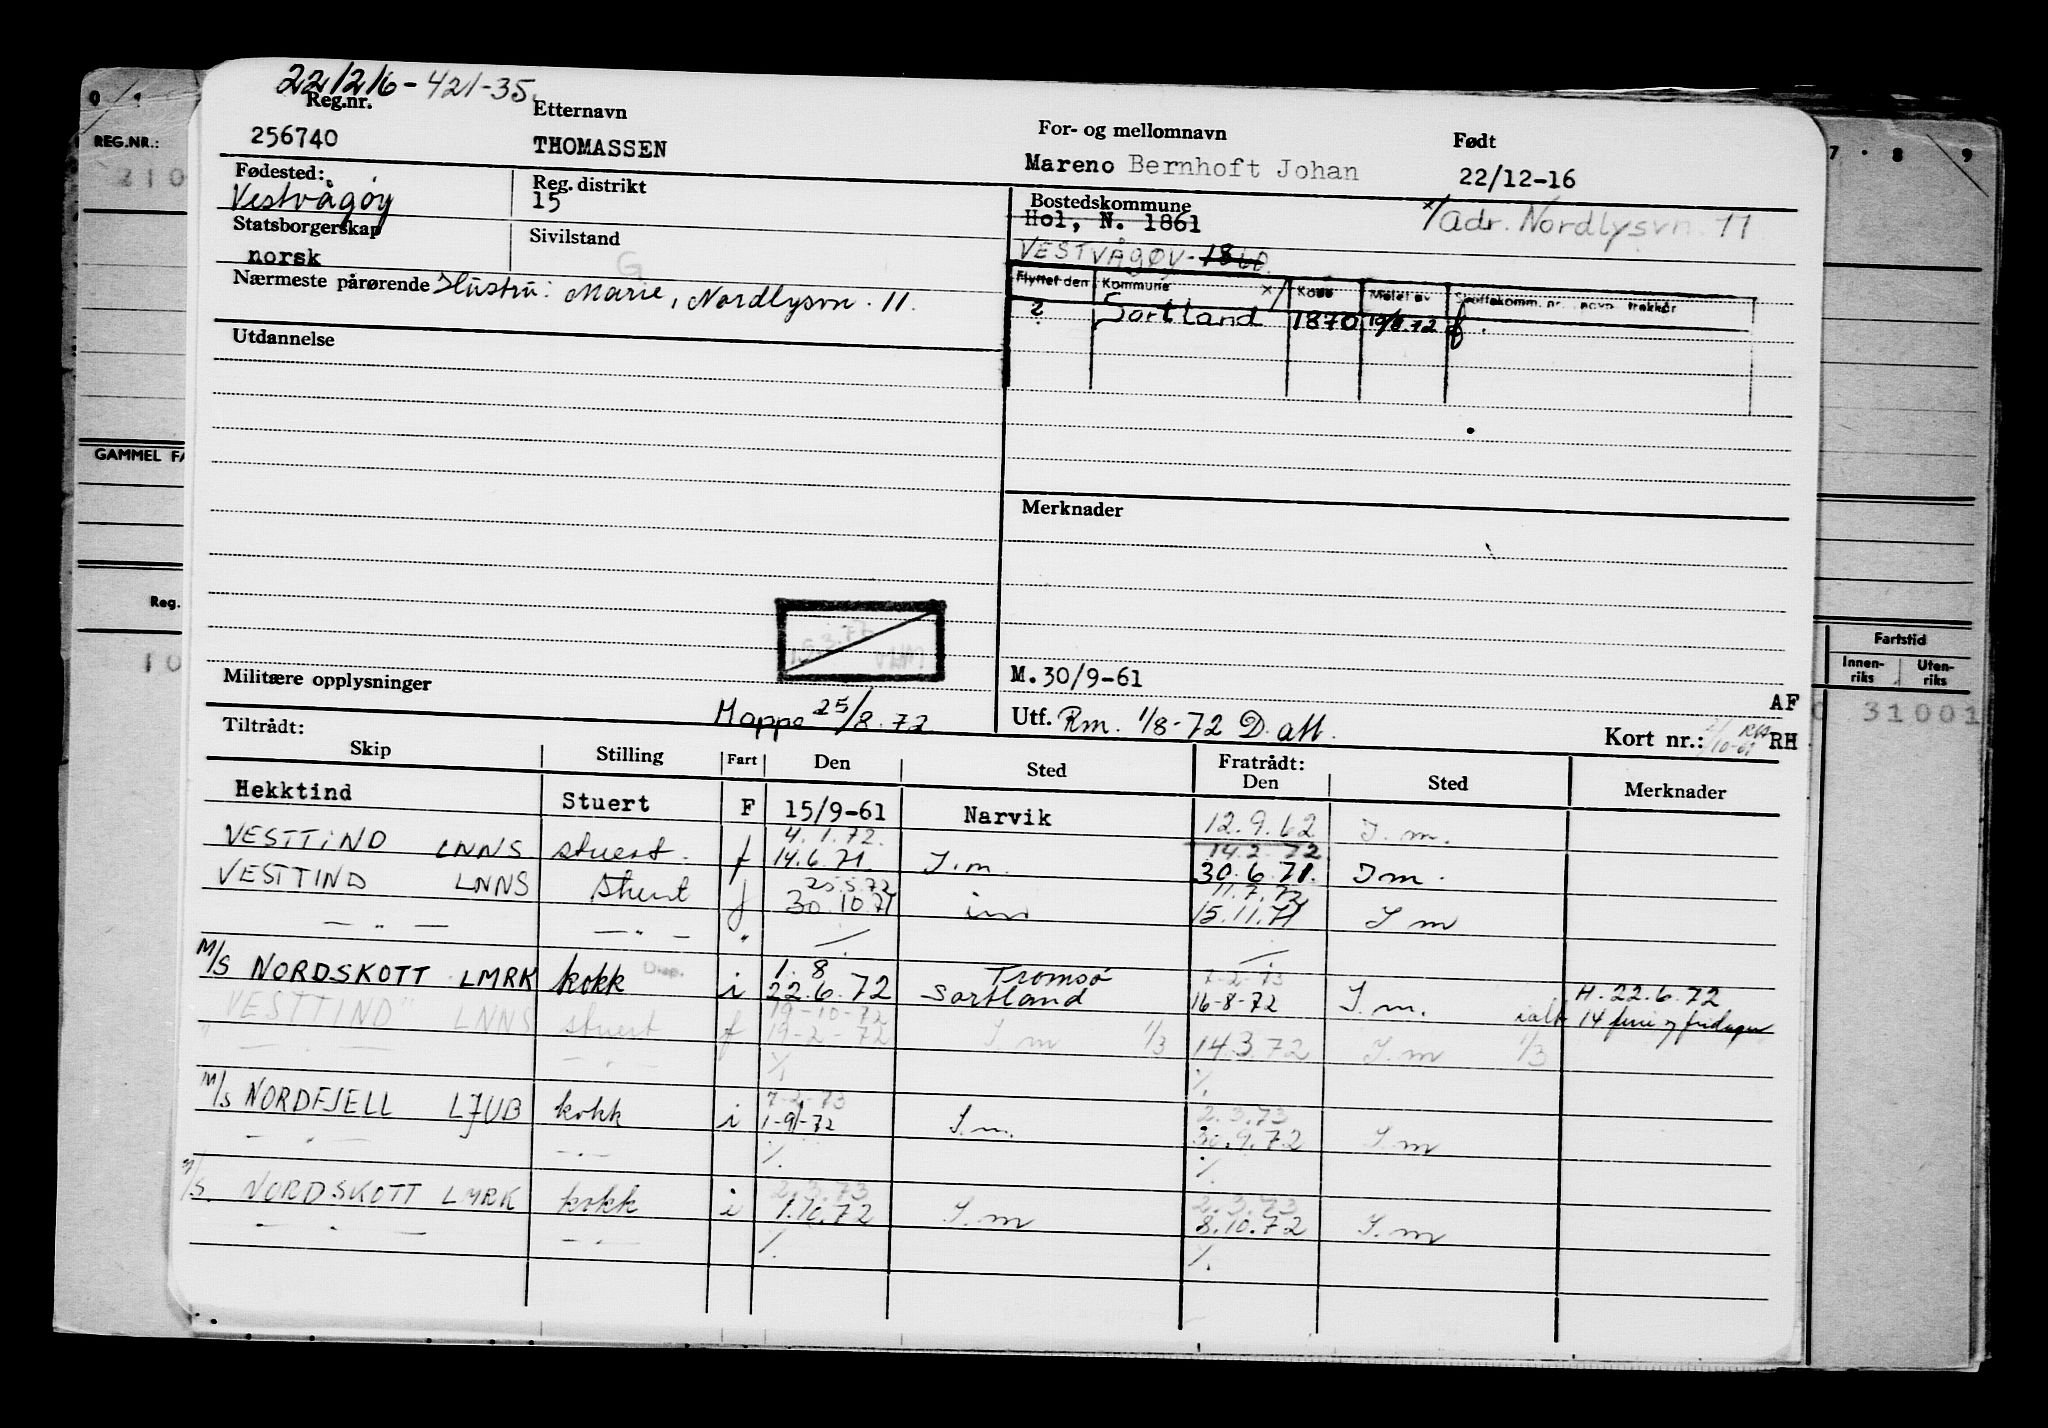 221216-421-35.
Reg.nr. Etternavn For- og mellomnavn Født
256740 THOMASSEN Mareno Bernhoft Johan 22/12-16
Fødested: Reg. distrikt Bostedskommune
Vestvågøy 15 Hol, N. 1861 x/Adr. Nordlysvn. 11
Statsborgerskap Sivilstand
norsk G VESTVÅGØY-1860.
Nærmeste pårørende Hustru: Marie, Nordlysvn. 11.
Flyttet den Kommune x/ Kode Meldt av Skattekomm. nr. navn trekkår
? Sortland 1870 10/8.72 f.
Utdannelse
Merknader
15.3.77
M.30/9-61
Militære opplysninger
AF
Mappe 25/8.72
Utf. Rm. 1/8-72 D. att.
Kort nr.: RH
Tiltrådt: Fratrådt:
Skip Stilling Fart Den Sted Den Sted Merknader
Hekktind Stuert F 15/9-61 Narvik 12.9.62 I.m.
4.1.72. 14.2.72
VESTTIND LNNS stuert. f 14.6.71. I.m. 30.6.71. Im.
25.5.72 11.7.72
VESTTIND LNNS stuert f 30.10.71 im 15.11.71 I m
— " — — " — "
1.8. Tromsø 7-2-73
M/S NORDSKOTT LMRK kokk i 22.6.72 Sortland 16-8-72 I.m. H. 22.6.72
ialt 14 ferie og fridager
19-10-72
"VESTTIND" LNNS stuert f 19-2-72 I m 1/3 14.3.72 I.m 1/3
— " — — " — ⁒ ⁒
7-2-73 2.3.73
M/S NORDFJELL LJUB kokk i 1-9-72 I.m. 30.9.72 I m
— " — — " — ⁒ ⁒
2.3.73 2.3.73
M/S. NORDSKOTT LMRK kokk i 1.10.72 I.m 8.10.72 I.m
— " — — " — ⁒ ⁒
REG.NR.:
210
GAMMEL FA
Reg.
10
7 8 9
Fartstid
Innen-riks Uten-riks
31001